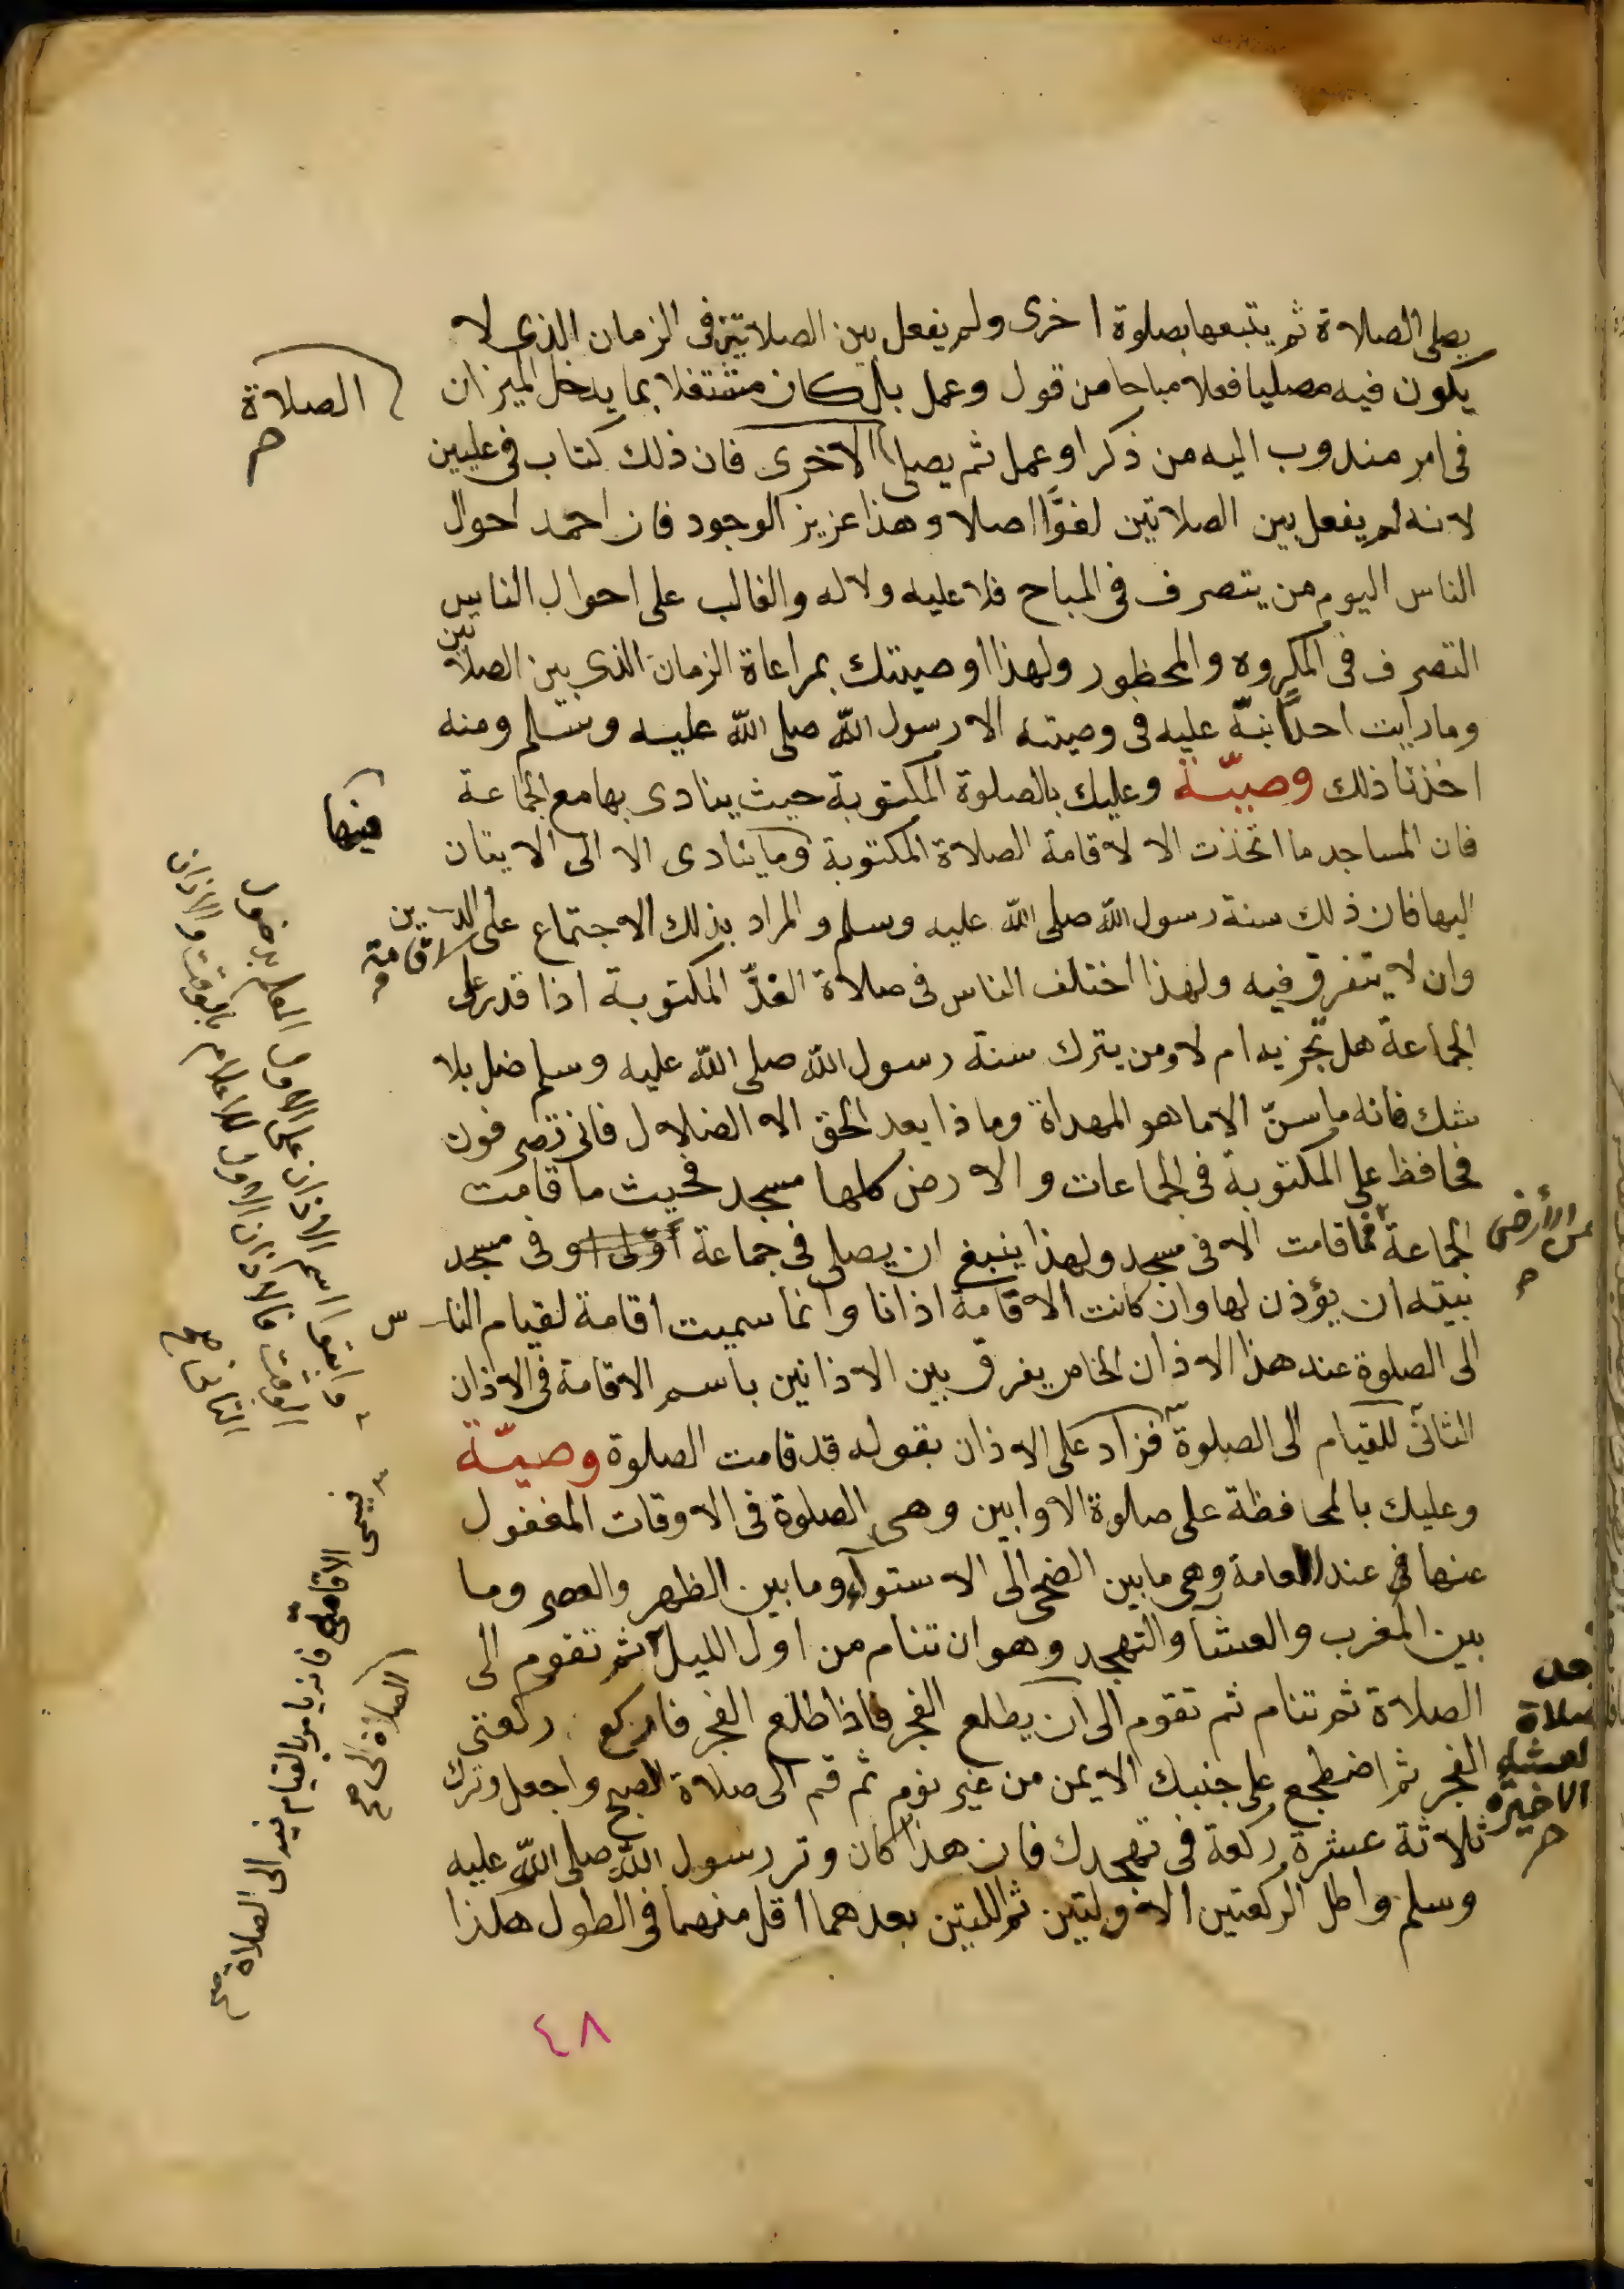 يصلى الصلاة ثم يتبعها بصلوة اخرى ولم يفعل بين الصلاتين فى الزمان الذى لا
يكون فيه مصليا فعلا مباحا من قول وعمل بل كان مشتغلا بما يدخل الميزان
فى امر مندوب اليه من ذكر او عمل ثم يصلى الاخرى فان ذلك كتاب فى عليين
الصلاة
لانه لم يفعل بين الصلاتين لغوًا اصلا وهذا عزيز الوجود فان احمد احوال
الناس اليوم من يتصرف فى المباح فلا عليه ولا له والغالب على احوال الناس
التصرف فى المكروه والمحظور ولهذا اوصيتك بمراعاة الزمان الذى بين الصلاتين
وما رايت احدًا نبّه عليه فى وصيته الا رسول الله صلى الله عليه وسلم ومنه
اخذنا ذلك وصيّة وعليك بالصلوة المكتوبة حيث ينادى بها مع الجماعة
فان المساجد ما اتخذت الا لاقامة الصلاة المكتوبة وما ينادى الا الى الاتيان
فيها
اليها فان ذلك سنة رسول الله صلى الله عليه وسلم والمراد بذلك الاجتماع على الدين
لاقامة
وان لا يتفرق فيه ولهذا اختلف الناس فى صلاة الفذّ المكتوبة اذا قدر على
الجماعة هل تجزيه ام لا ومن يترك سنة رسول الله صلى الله عليه وسلم ضل بلا
شك فانه ما سنّ الا ما هو المهداة وماذا بعد الحق الا الضلال فانى تصرفون
فحافظ على المكتوبة فى الجماعات والارض كلها مسجد فحيث ما قامت
الجماعة فما قامت الا فى مسجد ولهذا ينبغى ان يصلى فى جماعة او فى مسجد
من الأرض
بيته ان يؤذن لها وان كانت الاقامة اذانا وانما سميت اقامة لقيام الناس
الى الصلوة عند هذا الاذان الخاص يفرق بين الاذانين باسم الاقامة فى الاذان
الثانى للقيام الى الصلوة فزاد على الاذان بقوله قد قامت الصلوة وصيّة
وعليك بالمحافظة على صلوة الاوابين وهى الصلوة فى الاوقات المغفول
عنها عند العامة وهى ما بين الضحى الى الاستوآء وما بين الظهر والعصر وما
بين المغرب والعشا والتهجد وهو ان تنام من اول الليل ثم تقوم الى
الصلاة ثم تنام ثم تقوم الى ان يطلع الفجر فاذا طلع الفجر فاركع ركعتى
الفجر ثم اضطجع على جنبك الايمن من غير نوم ثم قم الى صلاة الصبح واجعل وترك
ثلاثة عشرة ركعة فى تهجدك فان هذا كان وتر رسول الله صلى الله عليه
وسلم واطل الركعتين الاوليتين ثم اللتين بعدهما اقل منهما فى الطول هكذا
صلاة
الاخيرة
وابقا اسم الاذان على الاول العلم بدخول
الوقت فالاذان الاول للاعلام بالوقت والاذان
الثانى
فيسمى الاقامة فانه يامر بالقيام فيه الى الصلاة
٤٨